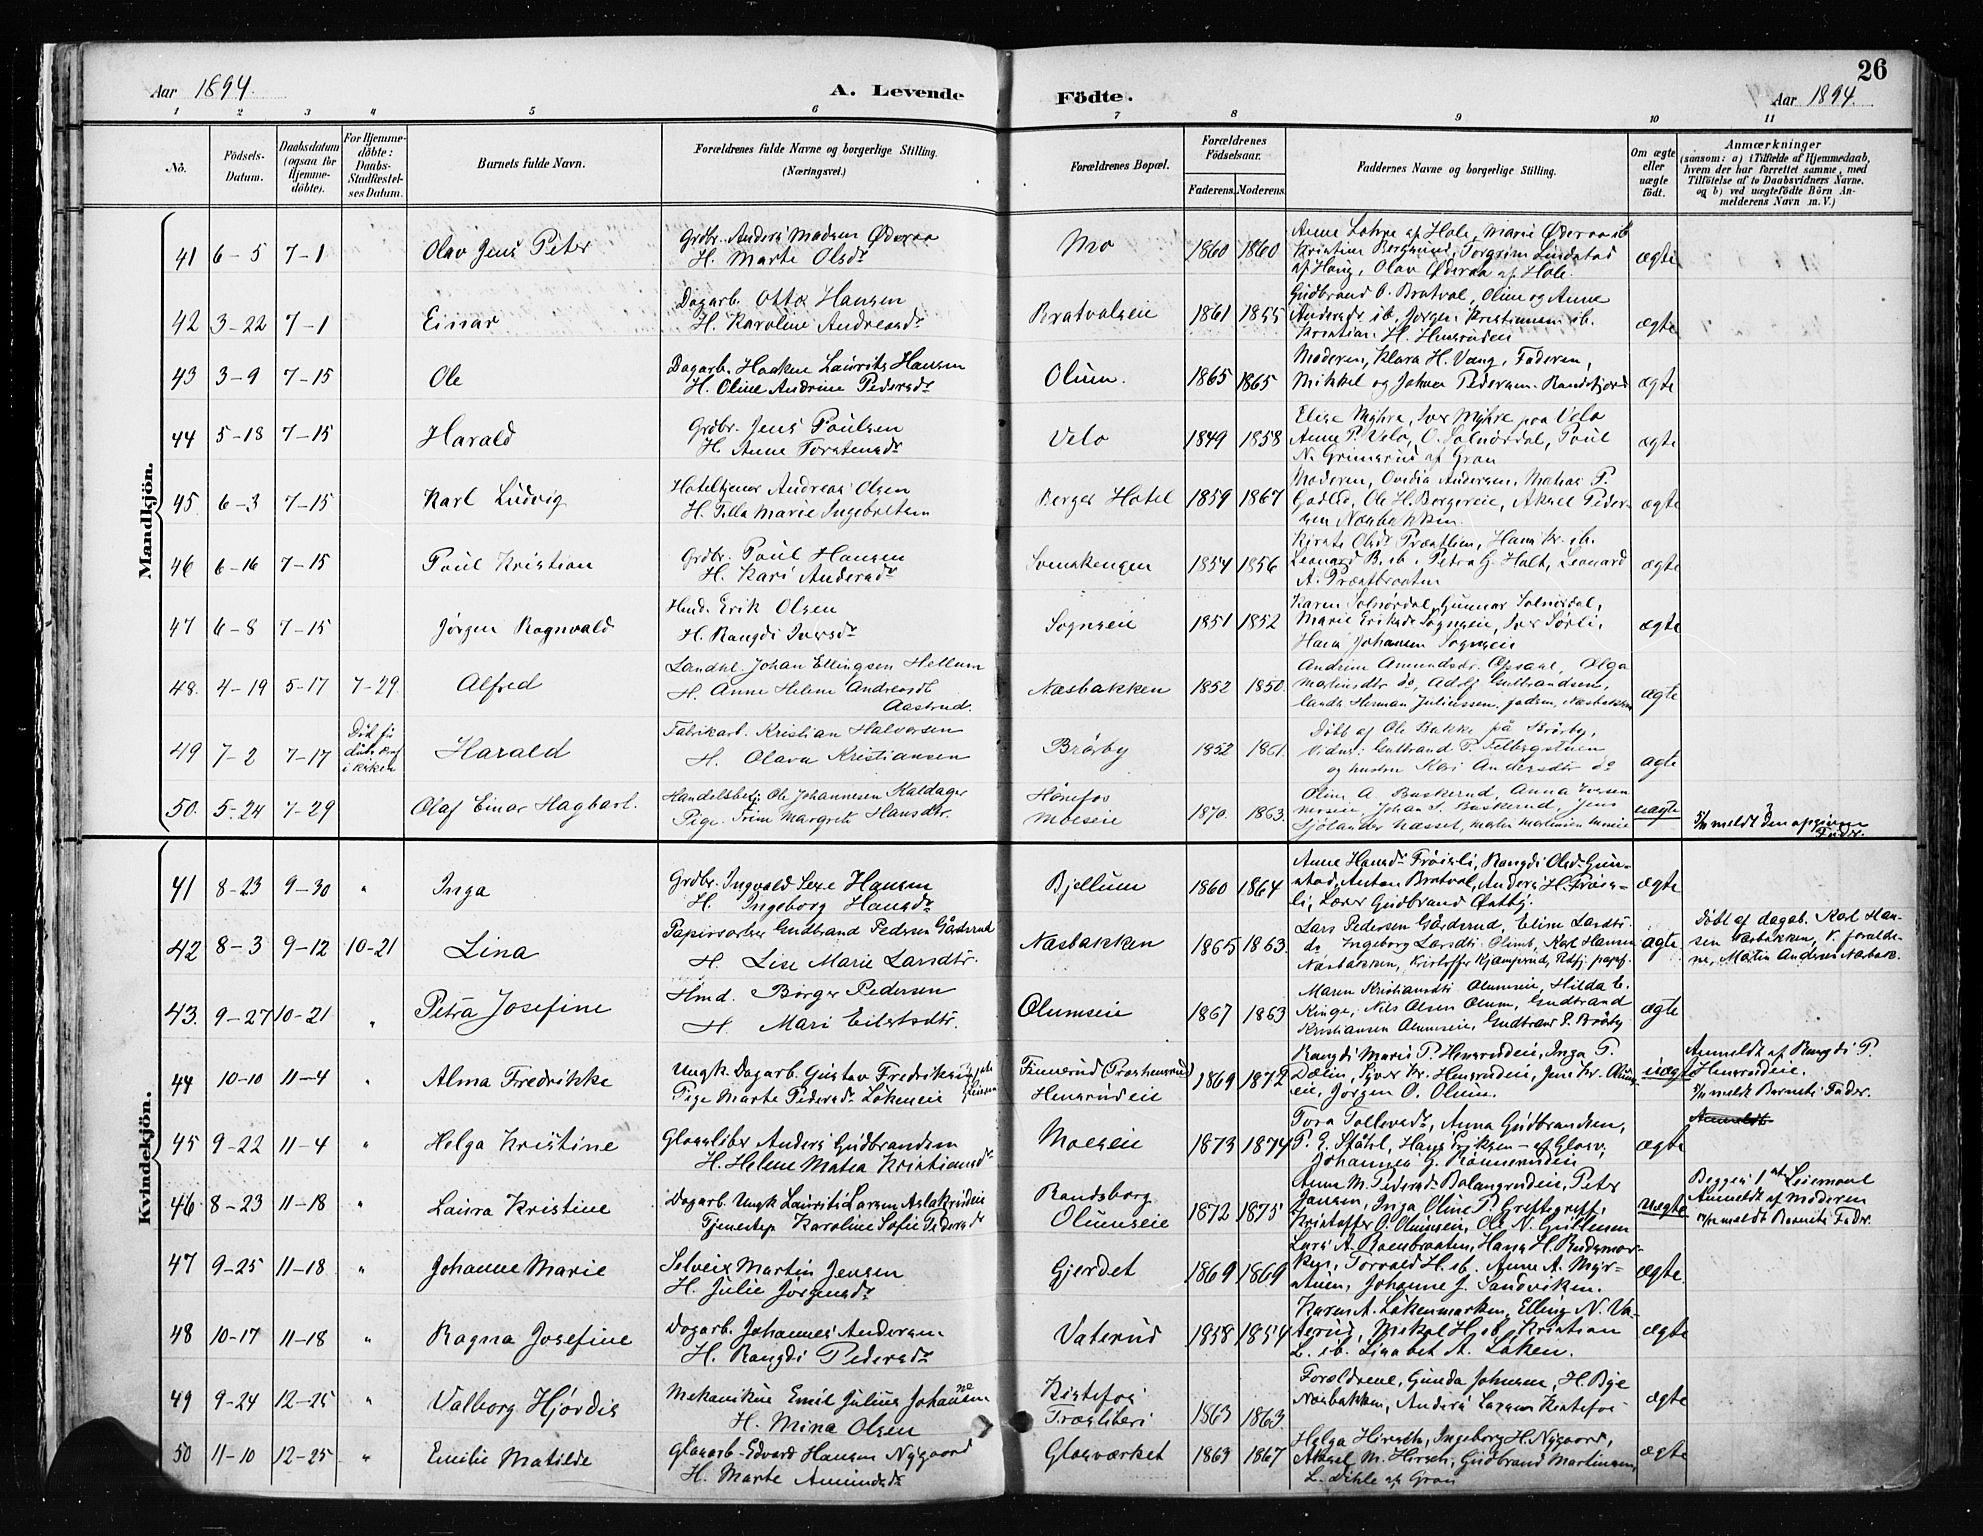 26
Aar 1894. A. Levende Födte. Aar 1894.
1 2 3 4 5 6 7 8 9 10 11
No.
Födsels-Datum.
Daabsdatum (ogsaa for Hjemme-döbte).
For Hjemme-döbte: Daabs-Stadfæstel-ses Datum.
Barnets fulde Navn.
Forældrenes fulde Navne og borgerlige Stilling. (Næringsvei.)
Forældrenes Bopæl.
Forældrenes Födselsaar.
Faderens. Moderens.
Faddernes Navne og borgerlige Stilling.
Om ægte eller uægte födt.
Anmærkninger
(saasom: a) i Tilfælde af Hjemmedaab, hvem der har forrettet samme, med Tilföielse af to Daabsvidners Navne, og b) ved uægtefödte Börn An-melderens Navn m. V.)
Mandkjön.
41 6-5 7-1 Olav Jens Peter Grdbr. Anders Madsen Øderaa
H. Marte Olsdr Mo 1860 1860 Anne Lohre af Hole, Marie Øderaa ib
af Haug, Olav Øderaa af Hole. ægte
42 3-22 7-1 Einar Dagarb. Otto Hansen
H. Karoline Andreasdr Bratvalseie 1861 1855 Gudbrand O. Bratval, Oline og Anne
Kristian H. Hensrudeie ægte
43 3-9 7-15 Ole Dagarb. Haaken Laurits Hansen
H. Oline Andrine Pedersdr Olum. 1865 1865 Moderen, Klara H. Vang, Faderen,
Mikkel og Johan Pedersen Randsfjord ægte
44 5-18 7-15 Harald Grdbr. Jens Poulsen
H. Anne Torstensdr Velo 1849 1858 Elise Myhre, Iver Myhre paa Velo
Anne P. Velo, O. Solnørdal, Poul
N. Grinsrud af Gran ægte
45 6-3 7-15 Karl Ludvig Hoteltjener Andreas Olsen
H. Tilla Marie Ingebretsen Berger Hotel 1859 1867 Moderen, Ovidia Andersen,
Ole H. Bergereie, Aksel Peder-
sen Næsbakken ægte
46 6-16 7-15 Poul Kristian Grdbr. Poul Hansen
H. Kari Andersdr Svenskengen 1854 1856
Leonard B. ib. Petra G. Holt, Leonard
A. Præstbraaten ægte
47 6-8 7-15 Jørgen Ragnvald Hmd. Erik Olsen
H. Rangdi Iversdr Sognseie 1851 1852 Karen Solnørdal, Gunnar Solnørdal,
Marie Eriksdr Sognseie, Iver Sørli,
Hans Johansen Sognseie ægte
48. 4-19 5-17 7-29 Alfred Landhl. Johan Ellingsen Hellum
H. Anne Helene Andreasdt
Aastrud. Næsbakken 1852 1850. Andrine Amundsdtr. Opsahl, Olga
Martinsdtr do, Adolf Gulbrandsen,
Herman Juliussen, Næsbakken ægte
49 7-2 7-17 Död før
i kirken Harald Fabrikarb. Kristian Halvorsen
H. Olava Kristiansen Brørby 1852 1861 Døbt af Ole Bakke på Brørby,
Vidner: Gulbrand P. Felbergstuen
og hustru Kari Andersdtr do ægte
50. 5-24 7-29 Olaf Einar Hagbart. Handelsbetj: Ole Johannesen Kaldager
Pige. Trine Margrete Hansdtr. Hönefos
Moeseie 1870. 1863. Oline A. Buskerud, Anna
Johan S. Buskerud, Jens
Sjølander Næsset, uægte meldt den opgivne
Fader.
Kvindekjön.
41 8-23 9-30 " Inga Grdbr. Ingvald Hansen
H. Ingeborg Hansdr Bjellum 1860 1864 Anne Hansdr Frøisli, Rangdi Olsdr Gun-
stad, Anton Bratval, Anders H. Frøis-
li, Lærer Gudbrand ægte
42 8-3 9-12 10-21 Lina Gudbrand Pedersen Gårdsrud
H. Lise Marie Larsdtr. Næsbakken 1865 1863. Lars Pedersen Gårdsrud, Eline Larsdtr
do, Ingeborg Larsdtr. Karl Hansen
Næsbakken, Kristoffer Kjæmperud ægte Döbt af dagab. Karl Han-
sen Næsbakken, V. foreldre-
ne, Martin Andersen Næsbak.
43. 9-27 10-21 " Petra Josefine Hmd. Börger Pedersen
H. Mari Eilertsdtr. Olumseie 1867 1863 Maren Kristiansdtr Olumseie, Hilda E.
Ringe, Nils Olsen Olum, Gudbrand
Kristiansen Olumseie, Gudbrand P. Brørby ægte
44 10-10 11-4 " Alma Fredrikke Ungk. Dagarb. Gustav Fredriksen
Pige Marte Pedersdr Løkeneie Finnerud
Hensrudeie 1869 1872 Rangdi Marie P. Hensrudeie, Inga P.
Dælin, Syver Kr. Hensrudeie, Jens Kr. Olums-
eie, Jørgen O. Olum. uægte Anmeldt af Rangdi P.
Hensrudeie.
meldt Barnets Fader.
45 9-22 11-4 " Helga Kristine Glassliber Anders Gudbrandsen
H. Helene Matea Kristiansdr Moeseie 1873 1874 Tora Tollevsdr, Anna Gudbrandsen,
P. E. Ståhl, Hans Eriksen
Johannes G. Rønnerudeie ægte Anmeldt
46 8-23 11-18 " Laura Kristine Dagarb. Ungk Laurits Larsen Aslaksrudeie
Tjenestep. Karoline Sofie Pedersdr Randsborg
Olumseie 1872 1875 Anne M. Pedersdr Bolangrudeie, Peter
Jansen, Inga Oline P. Greftegreff,
Kristoffer O. Olumseie, Ole N. Gullerud uægte Begges 1ste Leiermaal
Anmeldt af Moderen
meldt Barnets Fader.
47 9-25 11-18 " Johanne Marie Selveier Martin Jensen
H. Julie Jørgensdr Gjerdet 1869 1869 Lars A. Roenbraaten, Hans H. Rudsmar-
ken, Torvald H. ib. Anne A. Myr-
stuen, Johanne J. Sandviken. ægte.
48 10-17 11-18 " Ragna Josefine Dagarb. Johannes Andersen
H. Rangdi Pedersdr Vaterud 1858 1854 Karen A. Løkenmarken, Elling N. Va-
terud, Mikal H. ib. Kristian
L. ib. Lisabet A. Løken. ægte
49 9-24 12-25 " Valborg Hjørdis Mekanikus Emil Julius Johansen
H. Mina Olsen Kistefos
Træsliberi 1863 1863. Forældrene, Gunda Johnsen, H. Bye
Næsbakken, Anders Larsen Kistefos ægte
50 11-10 12-25 " Emilie Matilde Glasarb. Edvard Hansen Nygaard
H. Marte Amundsdr Glasværket 1863 1867 Helga Hirsch, Ingeborg H. Nygaard,
Aksel M. Hirsch, Gudbrand Martinsen,
L. Dihle af Gran ægte